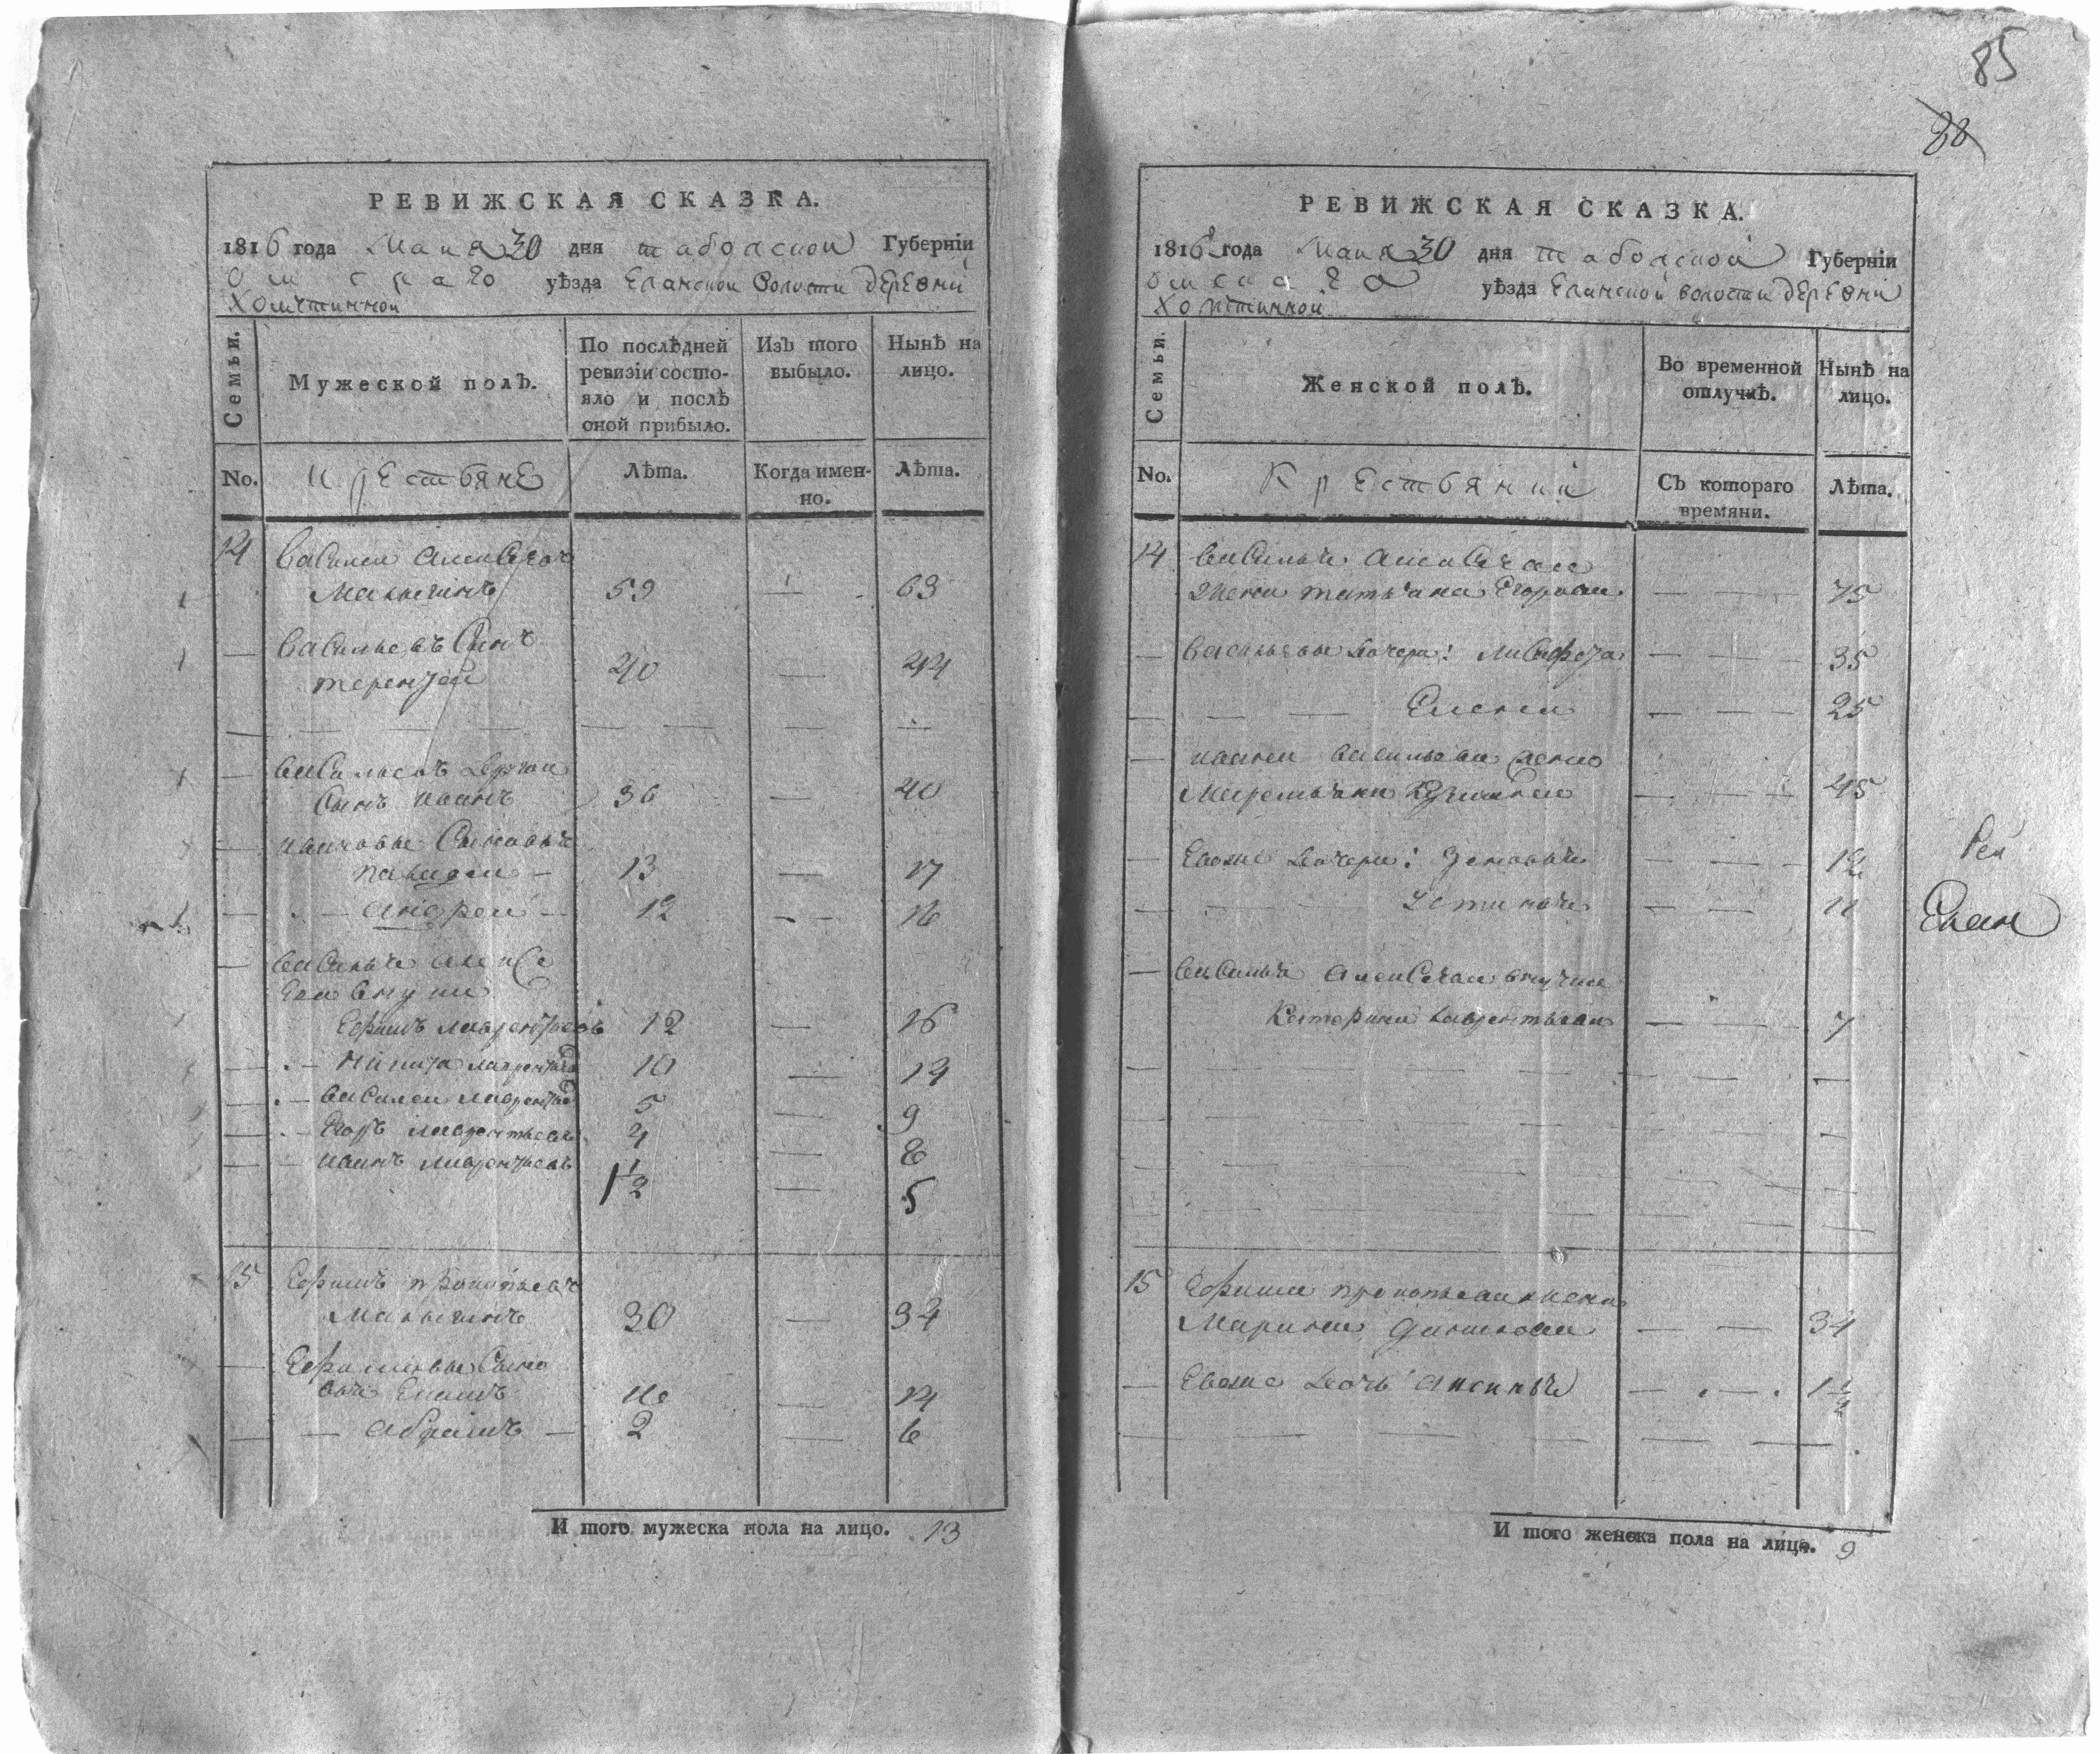 85
88
РЕВИЖСКАЯ СКАЗКА.
1816 года Маия 30 дня тобольской Губерніи
Омскаго уѣзда Еланской волости деревни
Семьи.
Мужеской полъ.
По послѣдней ревизіи состояло и послѣ оной прибыло.
Изъ того выбыло.
Нынѣ на лицо.
No.
Крестьяне
Лѣта.
Когда именно.
Лѣта.
14 Василей Алексѣевъ
Малыгинъ 59 — 63
— Васильевъ Сынъ
терентей 40 — 44
— Васильевъ другой
Сынъ Иванъ 36 — 40
— Ивановы Сыновья
13 — 17
— андрей — 12 — 16
— Василья Алексѣ
ева внуки
Ефимъ Лаврентьевъ 12 — 16
— Никита Лаврентьевъ 10 — 14
— Василей Лаврентьевъ 5 — 9
— Егоръ Лаврентьевъ 4 — 8
— Иванъ Лаврентьевъ 1 1/2 — 5
15 Ефимъ прокопьевъ
Малыгинъ 30 — 34
— Ефимовы Сыно
вья 10 — 14
— Абрамъ — 2 — 6
И того мужеска пола на лицо. 13
РЕВИЖСКАЯ СКАЗКА.
1816 года Маия 30 дня тобольской Губерніи
Омскаго уѣзда Еланской волости деревни
Семьи.
Женской полъ.
Во временной отлучкѣ.
Нынѣ на лицо.
No.
Крестьянки
Съ котораго времяни.
Лѣта.
14 Василья Алексѣева
Жена татьяна Егорова — — 75
— Васильевы дочери: — — 35
— — — Елена — — 25
— Ивана Васильева жена
Маремьяна — — 45
— Евоже дочери: Зеновья — — 12
— Устинья — — 11
— Василья Алексѣева внучка
Катерина Лаврентьева — — 7
15 Ефима прокопьева жена
Марина — — 34
— Евоже дочь Аксинья — — 1 1/2
И того женска пола на лицо. 9
Елан